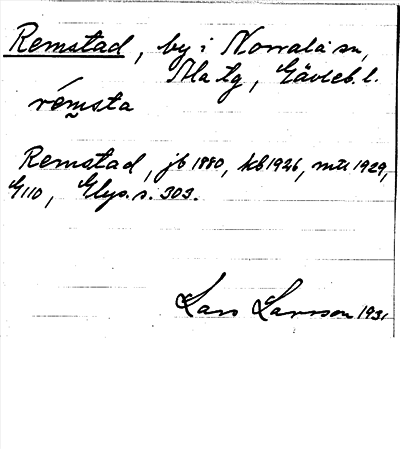 Remstad, by i Norrala sn,
Ala tg, Gävleb. l.
rémsta
Remstad, jb 1880, kb 1926, mtl 1929,
G110, Glys. s. 303.
Lars Larsson 1931